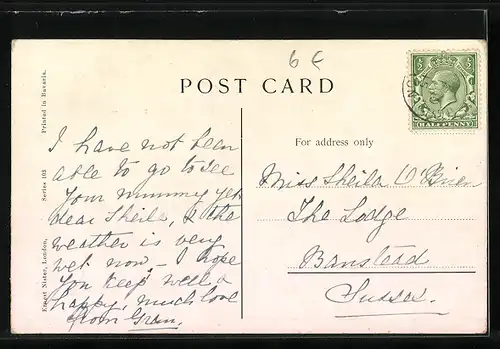 6 €
POST CARD
HALFPENNY
Printed in Bavaria.
Series 103
Ernest Nister, London,
For address only
I have not been
able to go to see
Your mummy yet
dear Sheila, & the
weather is very
wet now – I hope
You keep well &
happy, much love
from Gran.
Miss Sheila O'Brien
The Lodge
Banstead
Sussex.